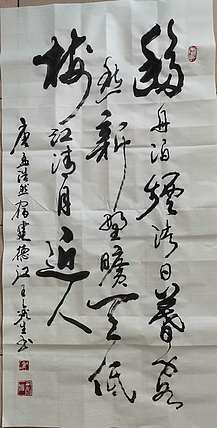 移舟泊煙渚日暮客
愁新野曠天低
樹江清月近人
唐孟浩然宿建德江 王